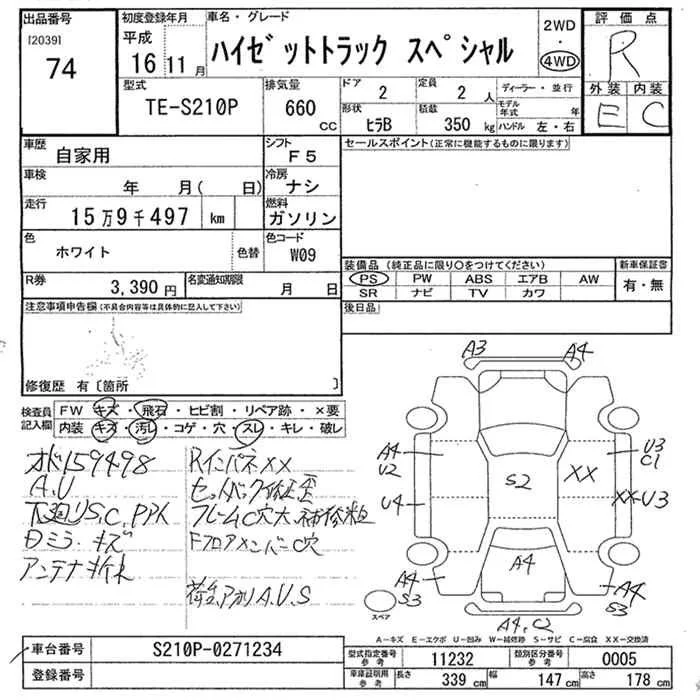 出品番号
[2039]
74
初度登録年月
平成
16 11月
車名・グレード
ハイゼットトラック スペシャル
2WD
・
4WD
評価点
R
外装 内装
E C
型式
TE-S210P
排気量
660 CC
ドア 2
定員 2 人
ディーラー・並行
モデル年式 年
形状 ヒラB
積載 350 kg
ハンドル 左・右
車歴 自家用
シフト F5
車検 年 月( 日)
冷房 ナシ
走行 15万9千497 km
燃料 ガソリン
色 ホワイト 色替
色コード W09
R券 3,390円
名変通知期限 月 日
セールスポイント(正常に機能するものに限ります)
装備品 (純正品に限り○をつけてください)
PS PW ABS エアB AW
SR ナビ TV カワ
新車保証書
有・無
後日品
注意事項申告欄(不具合内容等は具体的に記入して下さい)
修復歴 有〔箇所 〕
検査員記入欄
FW キズ・飛石・ヒビ割・リペア跡・×要
内装 キズ・汚レ・コゲ・穴・スレ・キレ・破レ
オド159498
A.U
下廻りS.C.PPA
Dミラーキズ
アンテナ
RインパネXX
セットバック
フレームC穴大
FフロアメンバーC穴
A.U.S
A3 A4
A4
U2
U4
S2
XX
U3
C1
XX U3
A4
A4
S3
A4
S3
A4.C2
スペア
A－キズ E－エクボ U－凹み W－補修跡 S－サビ C－腐食 XX－交換済
車台番号 S210P-0271234
登録番号
型式指定番号 参考 11232
類別区分番号 参考 0005
車庫証明用 参考 長さ 339 cm 幅 147 cm 高さ 178 cm